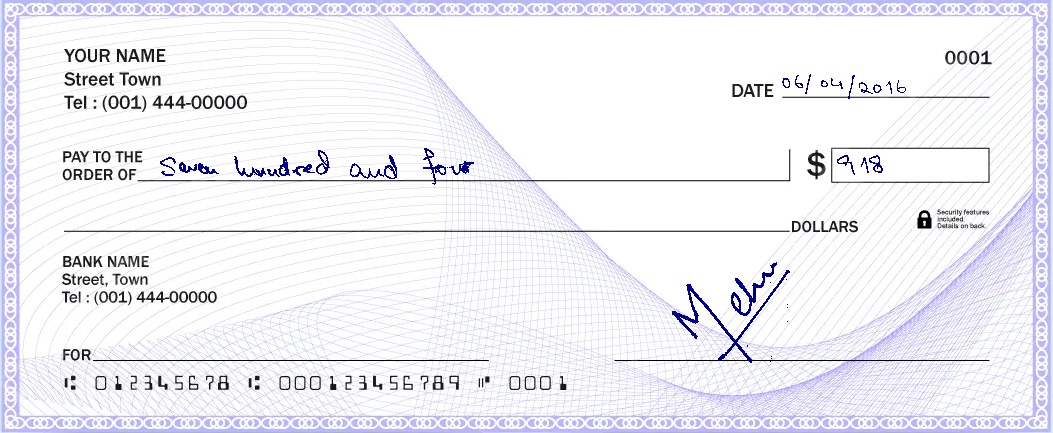 YOUR NAME
0001
Street Town
DATE 06/04/2016
Tel : (001) 444-00000
PAY TO THE
ORDER OF Seven hundred and four
$ 918
DOLLARS
Security features
included.
Details on back.
BANK NAME
Street, Town
Tel : (001) 444-00000
FOR
⑆ 012345678 ⑆ 000123456789 ⑈ 0001